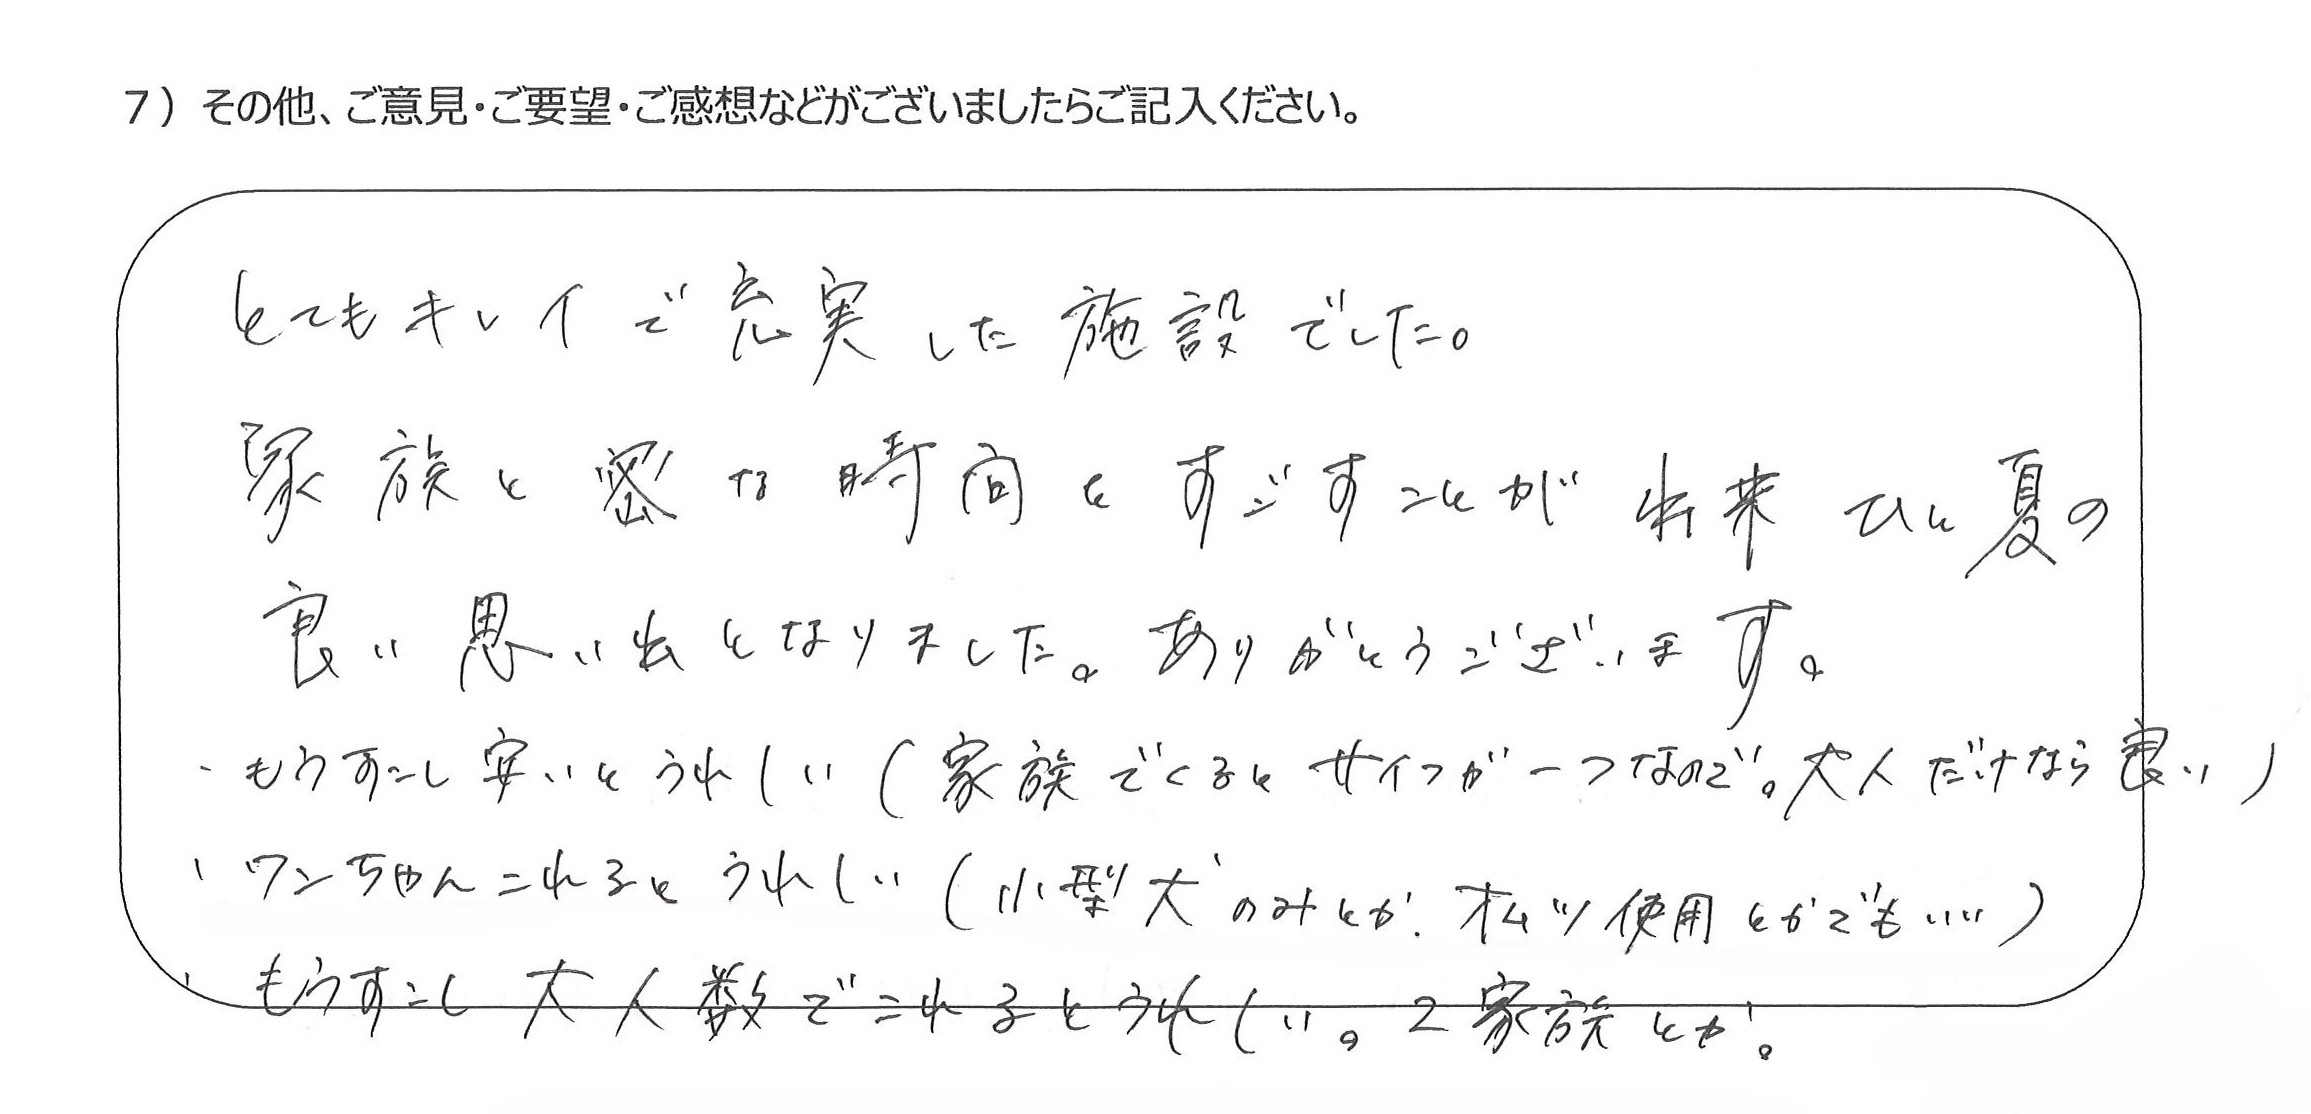 7）その他、ご意見・ご要望・ご感想などがございましたらご記入ください。
とてもキレイで充実した施設でした。
家族と密な時間をすごすことが出来ひと夏の
良い思い出となりました。ありがとうございます。
・もうすこし安いとうれしい（家族でくるとサイフが一つなので。大人だけなら良い）
・ワンちゃんこれるとうれしい（小型犬のみとか、オムツ使用とかでもいい）
・もうすこし大人数でこれるとうれしい。2家族とか。